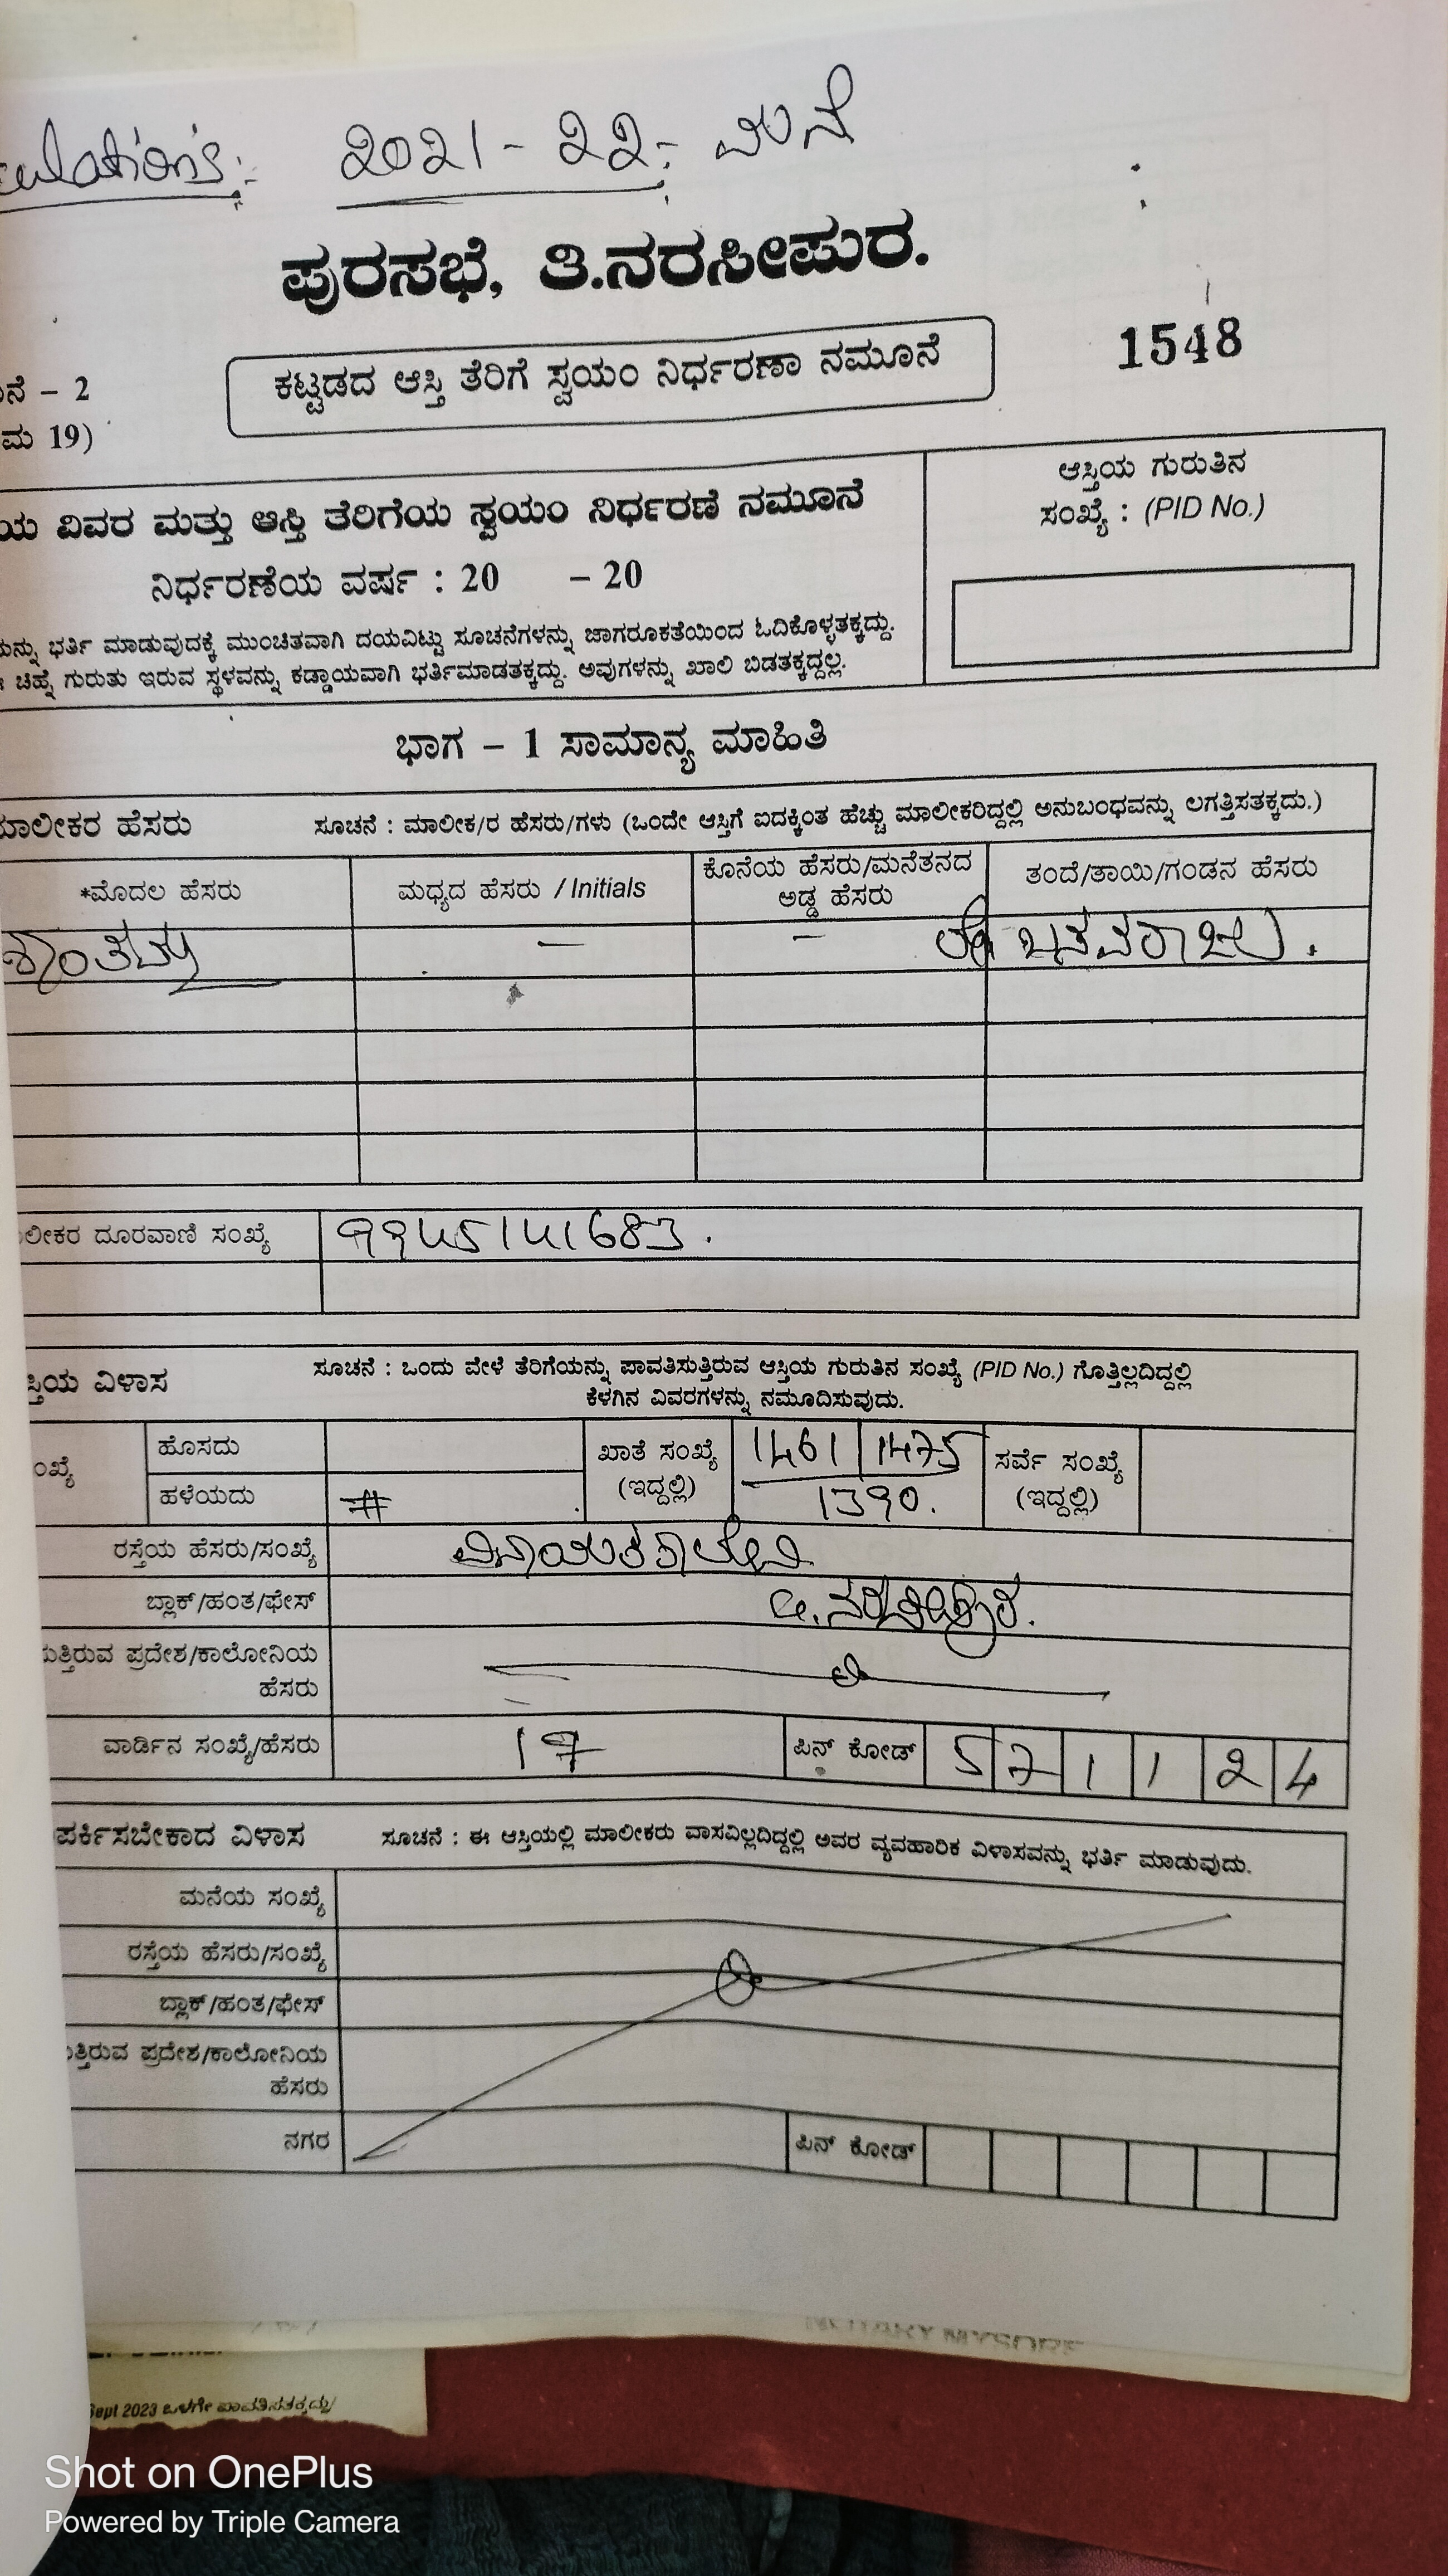 culations: 2021-22:- ಮನೆ
ಪುರಸಭೆ, ತಿ.ನರಸೀಪುರ.
1548
ಕಟ್ಟಡದ ಆಸ್ತಿ ತೆರಿಗೆ ಸ್ವಯಂ ನಿರ್ಧರಣಾ ನಮೂನೆ
ನೆ – 2
ಮ 19)
ಯ ವಿವರ ಮತ್ತು ಆಸ್ತಿ ತೆರಿಗೆಯ ಸ್ವಯಂ ನಿರ್ಧರಣೆ ನಮೂನೆ
ನಿರ್ಧರಣೆಯ ವರ್ಷ : 20 – 20
ಆಸ್ತಿಯ ಗುರುತಿನ
ಸಂಖ್ಯೆ : (PID No.)
ಯನ್ನು ಭರ್ತಿ ಮಾಡುವುದಕ್ಕೆ ಮುಂಚಿತವಾಗಿ ದಯವಿಟ್ಟು ಸೂಚನೆಗಳನ್ನು ಜಾಗರೂಕತೆಯಿಂದ ಓದಿಕೊಳ್ಳತಕ್ಕದ್ದು.
ಚಿಹ್ನೆ ಗುರುತು ಇರುವ ಸ್ಥಳವನ್ನು ಕಡ್ಡಾಯವಾಗಿ ಭರ್ತಿಮಾಡತಕ್ಕದ್ದು. ಅವುಗಳನ್ನು ಖಾಲಿ ಬಿಡತಕ್ಕದ್ದಲ್ಲ.
ಭಾಗ – 1 ಸಾಮಾನ್ಯ ಮಾಹಿತಿ
ಮಾಲೀಕರ ಹೆಸರು ಸೂಚನೆ : ಮಾಲೀಕ/ರ ಹೆಸರು/ಗಳು (ಒಂದೇ ಆಸ್ತಿಗೆ ಐದಕ್ಕಿಂತ ಹೆಚ್ಚು ಮಾಲೀಕರಿದ್ದಲ್ಲಿ ಅನುಬಂಧವನ್ನು ಲಗತ್ತಿಸತಕ್ಕದು.)
*ಮೊದಲ ಹೆಸರು ಮಧ್ಯದ ಹೆಸರು / Initials ಕೊನೆಯ ಹೆಸರು/ಮನೆತನದ ಅಡ್ಡ ಹೆಸರು ತಂದೆ/ತಾಯಿ/ಗಂಡನ ಹೆಸರು
– – ಬಸವರಾಜು.
ಲೀಕರ ದೂರವಾಣಿ ಸಂಖ್ಯೆ 9945141683.
ಸ್ತಿಯ ವಿಳಾಸ ಸೂಚನೆ : ಒಂದು ವೇಳೆ ತೆರಿಗೆಯನ್ನು ಪಾವತಿಸುತ್ತಿರುವ ಆಸ್ತಿಯ ಗುರುತಿನ ಸಂಖ್ಯೆ (PID No.) ಗೊತ್ತಿಲ್ಲದಿದ್ದಲ್ಲಿ
ಕೆಳಗಿನ ವಿವರಗಳನ್ನು ನಮೂದಿಸುವುದು.
ಂಖ್ಯೆ ಹೊಸದು ಖಾತೆ ಸಂಖ್ಯೆ 1461/1475 ಸರ್ವೆ ಸಂಖ್ಯೆ
ಹಳೆಯದು # (ಇದ್ದಲ್ಲಿ) 1390. (ಇದ್ದಲ್ಲಿ)
ರಸ್ತೆಯ ಹೆಸರು/ಸಂಖ್ಯೆ ವಿನಾಯಕಕಾಲೋನಿ
ಬ್ಲಾಕ್/ಹಂತ/ಫೇಸ್ ತಿ.ನರಸೀಪುರ.
ುತ್ತಿರುವ ಪ್ರದೇಶ/ಕಾಲೋನಿಯ
ಹೆಸರು
ವಾರ್ಡಿನ ಸಂಖ್ಯೆ/ಹೆಸರು 17 ಪಿನ್ ಕೋಡ್ 5 7 1 1 2 4
ಪರ್ಕಿಸಬೇಕಾದ ವಿಳಾಸ ಸೂಚನೆ : ಈ ಆಸ್ತಿಯಲ್ಲಿ ಮಾಲೀಕರು ವಾಸವಿಲ್ಲದಿದ್ದಲ್ಲಿ ಅವರ ವ್ಯವಹಾರಿಕ ವಿಳಾಸವನ್ನು ಭರ್ತಿ ಮಾಡುವುದು.
ಮನೆಯ ಸಂಖ್ಯೆ
ರಸ್ತೆಯ ಹೆಸರು/ಸಂಖ್ಯೆ
ಬ್ಲಾಕ್/ಹಂತ/ಫೇಸ್
ುತ್ತಿರುವ ಪ್ರದೇಶ/ಕಾಲೋನಿಯ
ಹೆಸರು
ನಗರ ಪಿನ್ ಕೋಡ್
NOTARY MYSORE
Sept 2023 ಒಳಗೇ ಪಾವತಿಸತಕ್ಕದ್ದು
Shot on OnePlus
Powered by Triple Camera